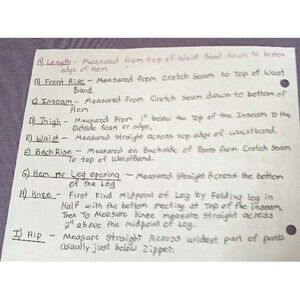 A) Length - Measured from top of Waist Band down to bottom
edge of Hem
B) Front Rise - Measured from Crotch Seam to Top of Waist
Band.
C) Inseam - Measured from Crotch Seam down to bottom of
Hem
D) Thigh - Measured From 1" below the Top of the Inseam To the
Outside Seam or edge.
E) Waist - Measured straight across top edge of waistband.
F) Back Rise - Measured on Backside of Pants from Crotch Seam
To top of Waistband.
G) Hem or Leg opening - Measured Straight Across the bottom
of the Leg
H) Knee - First Find Midpoint of Leg by Folding leg in
Half with the bottom meeting at Top of the inseam
Then To Measure Knee Measure straight across
2" above the midpoint of Leg.
I) Hip - Measure Straight Across widest part of pants
Usually just below Zipper.